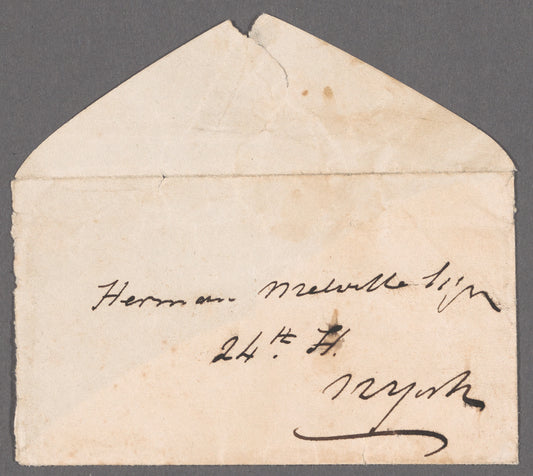 Herman Melville Esqr
24th St.
N York